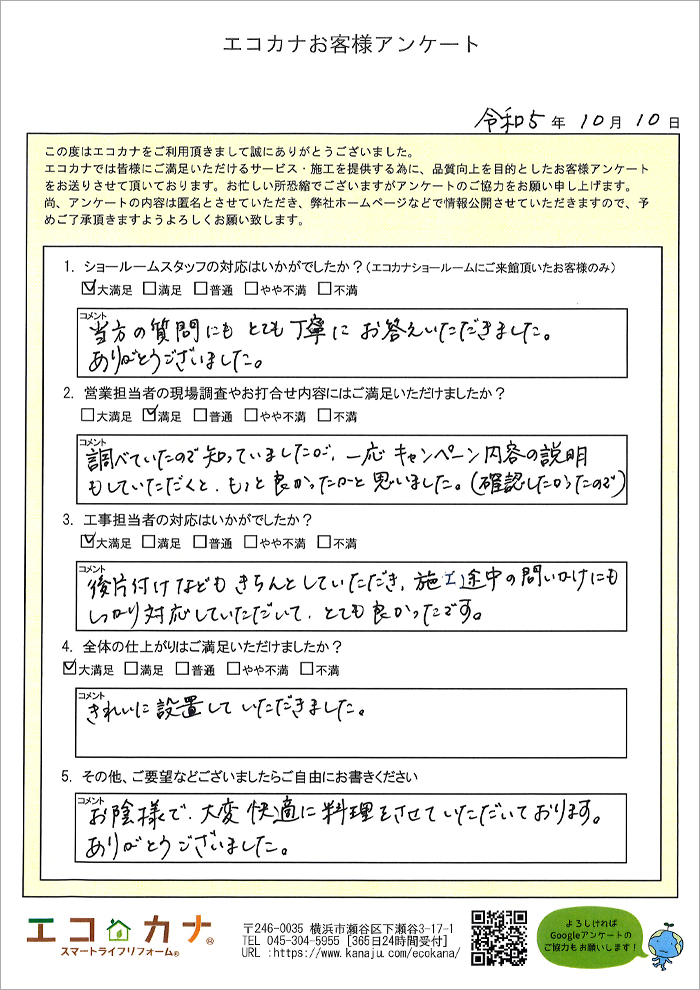 エコカナお客様アンケート
令和5 年 10 月 10 日
この度はエコカナをご利用頂きまして誠にありがとうございました。
エコカナでは皆様にご満足いただけるサービス・施工を提供する為に、品質向上を目的としたお客様アンケート
をお送りさせて頂いております。お忙しい所恐縮でございますがアンケートのご協力をお願い申し上げます。
尚、アンケートの内容は匿名とさせていただき、弊社ホームページなどで情報公開させていただきますので、予
めご了承頂きますようよろしくお願い致します。
1. ショールームスタッフの対応はいかがでしたか？(エコカナショールームにご来館頂いたお客様のみ)
☑大満足 □満足 □普通 □やや不満 □不満
コメント
当方の質問にも とても丁寧に お答えいただきました。
ありがとうございました。
2. 営業担当者の現場調査やお打合せ内容にはご満足いただけましたか？
□大満足 ☑満足 □普通 □やや不満 □不満
コメント
調べていたので知っていましたが、一応 キャンペーン内容の説明
もしていただくと、もっと良かったかと思いました。(確認したかったので)
3. 工事担当者の対応はいかがでしたか？
☑大満足 □満足 □普通 □やや不満 □不満
コメント
後片付けなどもきちんとしていただき、施工途中の問いかけにも
しっかり対応していただいて、とても良かったです。
4. 全体の仕上がりはご満足いただけましたか？
☑大満足 □満足 □普通 □やや不満 □不満
コメント
きれいに設置していただきました。
5. その他、ご要望などございましたらご自由にお書きください
コメント
お陰様で、大変快適に料理をさせていただいております。
ありがとうございました。
エコカナ®
スマートライフリフォーム®
〒246-0035 横浜市瀬谷区下瀬谷3-17-1
TEL 045-304-5955 [365日24時間受付]
URL :https://www.kanaju.com/ecokana/
よろしければ
Googleアンケートの
ご協力もお願いします！